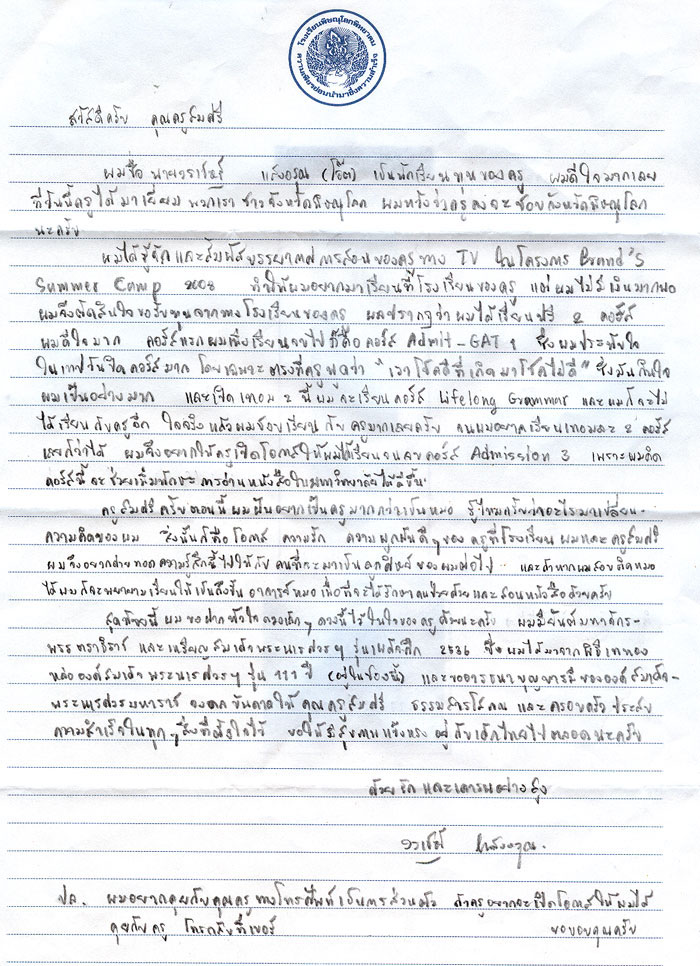 โรงเรียนพิษณุโลกพิทยาคม
ความเพียรย่อมนำมาซึ่งความสำเร็จ
สวัสดีครับ คุณครูสมศรี
ผมชื่อ นาย แสงอรุณ (โอ๊ต) เป็นนักเรียนทุนของครู ผมดีใจมากเลย
ที่วันนี้ครูได้มาเยี่ยม พวกเราชาวจังหวัดพิษณุโลก ผมหวังว่าครูคงจะชอบจังหวัดพิษณุโลก
นะครับ
ผมได้รู้จักและสัมผัสบรรยากาศการสอนของครูทาง TV ในโครงการ Brand'S
Summer Camp 2008 ทำให้ผมอยากมาเรียนที่โรงเรียนของครู แต่ผมไม่มีเงินมากพอ
ผมจึงตัดสินใจขอรับทุนจากทางโรงเรียนของครู ผลปรากฏว่าผมได้เรียนฟรี 2 คอร์ส
ผมดีใจมาก คอร์สแรกผมเพิ่งเรียนจบไป ก็คือ คอร์ส Admit-GAT 1 ซึ่งผมประทับใจ
ในเทปวันปิดคอร์สมาก โดยเฉพาะตรงที่ครูพูดว่า "เราโชคดีที่เกิดมาโชคไม่ดี" ซึ่งมันกินใจ
ผมเป็นอย่างมาก และเปิดเทอม 2 นี้ ผมจะเรียนคอร์ส Lifelong Grammar และผมก็จะไม่
ได้เรียนกับครูอีก ใจจริงแล้วผมชอบเรียนกับครูมากเลยครับ จนผมอยากเรียนเทอมละ 2 คอร์ส
เลยก็ว่าได้ ผมจึงอยากให้ครูเปิดโอกาสให้ผมได้เรียนจนจบคอร์ส Admission 3 เพราะผมคิด
คอร์สนี้จะช่วยเพิ่มทักษะการอ่านหนังสือในมหาวิทยาลัยได้ดีขึ้น
ครูสมศรีครับตอนนี้ ผมฝันอยากเป็นครูมากกว่าเป็นหมอ รู้ไหมครับว่าอะไรมาเปลี่ยน-
ความคิดของผม สิ่งนั้นก็คือ โอกาส ความรัก ความผูกพันดีๆของ ครูที่โรงเรียนผมและครูสมศรี
ผมจึงอยากถ่ายทอดความรู้สึกนี้ไปให้กับ คนที่จะมาเป็นลูกศิษย์ของผมต่อไป และถ้าหากผมสอบติดหมอ
ได้ ผมก็จะพยายามเรียนให้เป็นถึงขั้น อาจารย์หมอ เพื่อที่จะได้รักษาคนป่วยด้วยและสอนหนังสือด้วยครับ
สุดท้ายนี้ ผมขอฝากหัวใจดวงเล็กๆ ดวงนี้ไว้ในใจของครูด้วยนะครับ ผมมียันต์มหาจักร-
พรรตราธิราช และเหรียญสมเด็จพระนเรศวรฯ รุ่นเผด็จศึก 2536 ซึ่งผมได้มาจากพิธีเททอง
หล่อองค์สมเด็จพระนเรศวรฯ รุ่น 111 ปี (อยู่ในซองนี้) และขออาราธนาบุญบารมีขององค์สมเด็จ-
พระนเรศวรมหาราช จงดลบันดาลให้ คุณครูสมศรี ธรรมสารโสภณ และครอบครัว ประสบ
ความสำเร็จในทุกๆสิ่งที่ตั้งใจไว้ ขอให้มีสุขภาพแข็งแรง อยู่กับเด็กไทยไปตลอดนะครับ
ด้วยรักและเคารพอย่างสูง
แสงอรุณ.
ปล. ผมอยากคุยกับคุณครูทางโทรศัพท์เป็นการส่วนตัว ถ้าครูอยากจะเปิดโอกาสให้ผมได้
คุยกับครู โทรกลับที่เบอร์ ขอบคุณครับ